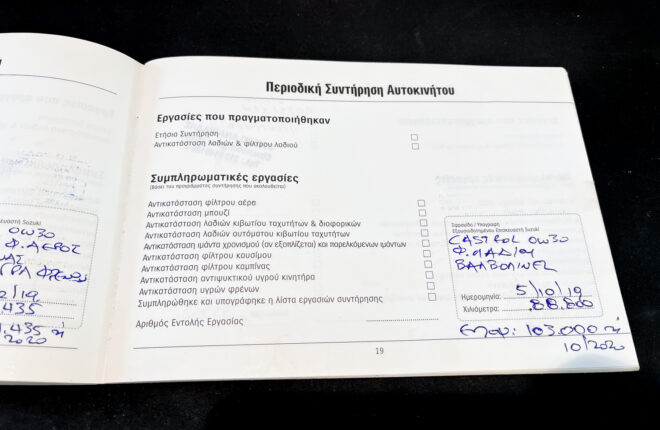 Suzuki
0W30
Φ. ΑΕΡΟΣ
2/19
.435
.435 ή
2020
Περιοδική Συντήρηση Αυτοκινήτου
Εργασίες που πραγματοποιήθηκαν
Ετήσια Συντήρηση
Αντικατάσταση λαδιών & φίλτρου λαδιού
Συμπληρωματικές εργασίες
(Βάσει του προγράμματος συντήρησης που ακολουθείται)
Αντικατάσταση φίλτρου αέρα
Αντικατάσταση μπουζί
Αντικατάσταση λαδιών κιβωτίου ταχυτήτων & διαφορικών
Αντικατάσταση λαδιών αυτόματου κιβωτίου ταχυτήτων
Αντικατάσταση ιμάντα χρονισμού (αν εξοπλίζεται) και παρελκόμενων ιμάντων
Αντικατάσταση φίλτρου καυσίμου
Αντικατάσταση φίλτρου καμπίνας
Αντικατάσταση αντιψυκτικού υγρού κινητήρα
Αντικατάσταση υγρών φρένων
Συμπληρώθηκε και υπογράφηκε η λίστα εργασιών συντήρησης
Αριθμός Εντολής Εργασίας
Σφραγίδα / Υπογραφή
Εξουσιοδοτημένου Επισκευαστή Suzuki
CASTROL 0W30
Φ. ΛΑΔΙΟΥ
ΒΑΛΒΟΛΙΝΕΣ
Ημερομηνία: 5/10/19
Χιλιόμετρα: 88.800
Επομ: 103.000 ή
10/2020
19